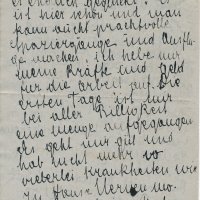 es endlich geglückt! Es
ist hier schön und man
kann sucht prachtvolle
Spaziergänge und Ausflü-
ge machen. ich hebe mir
meine Kräfte und Geld
für die Arbeit auf. Die
ersten Tage ist mir
bei aller
eine menge aufgegangen
Es geht mir gut und
hab nicht mehr so
vielerlei Krankheiten wie
In